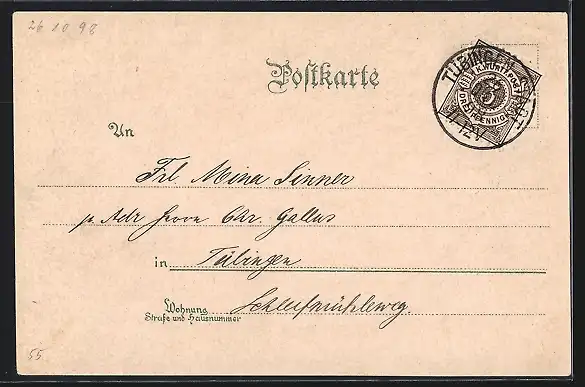 26 10 98
Postkarte
TÜBINGEN STADT
K. WÜRTT. POST
3
DREI PFENNIG
11-12 V
An
Frl. Mina Sinner
p. Adr Herrn Chr. Gallus
in Tübingen
Wohnung Schleifmühleweg.
Straße und Hausnummer
55